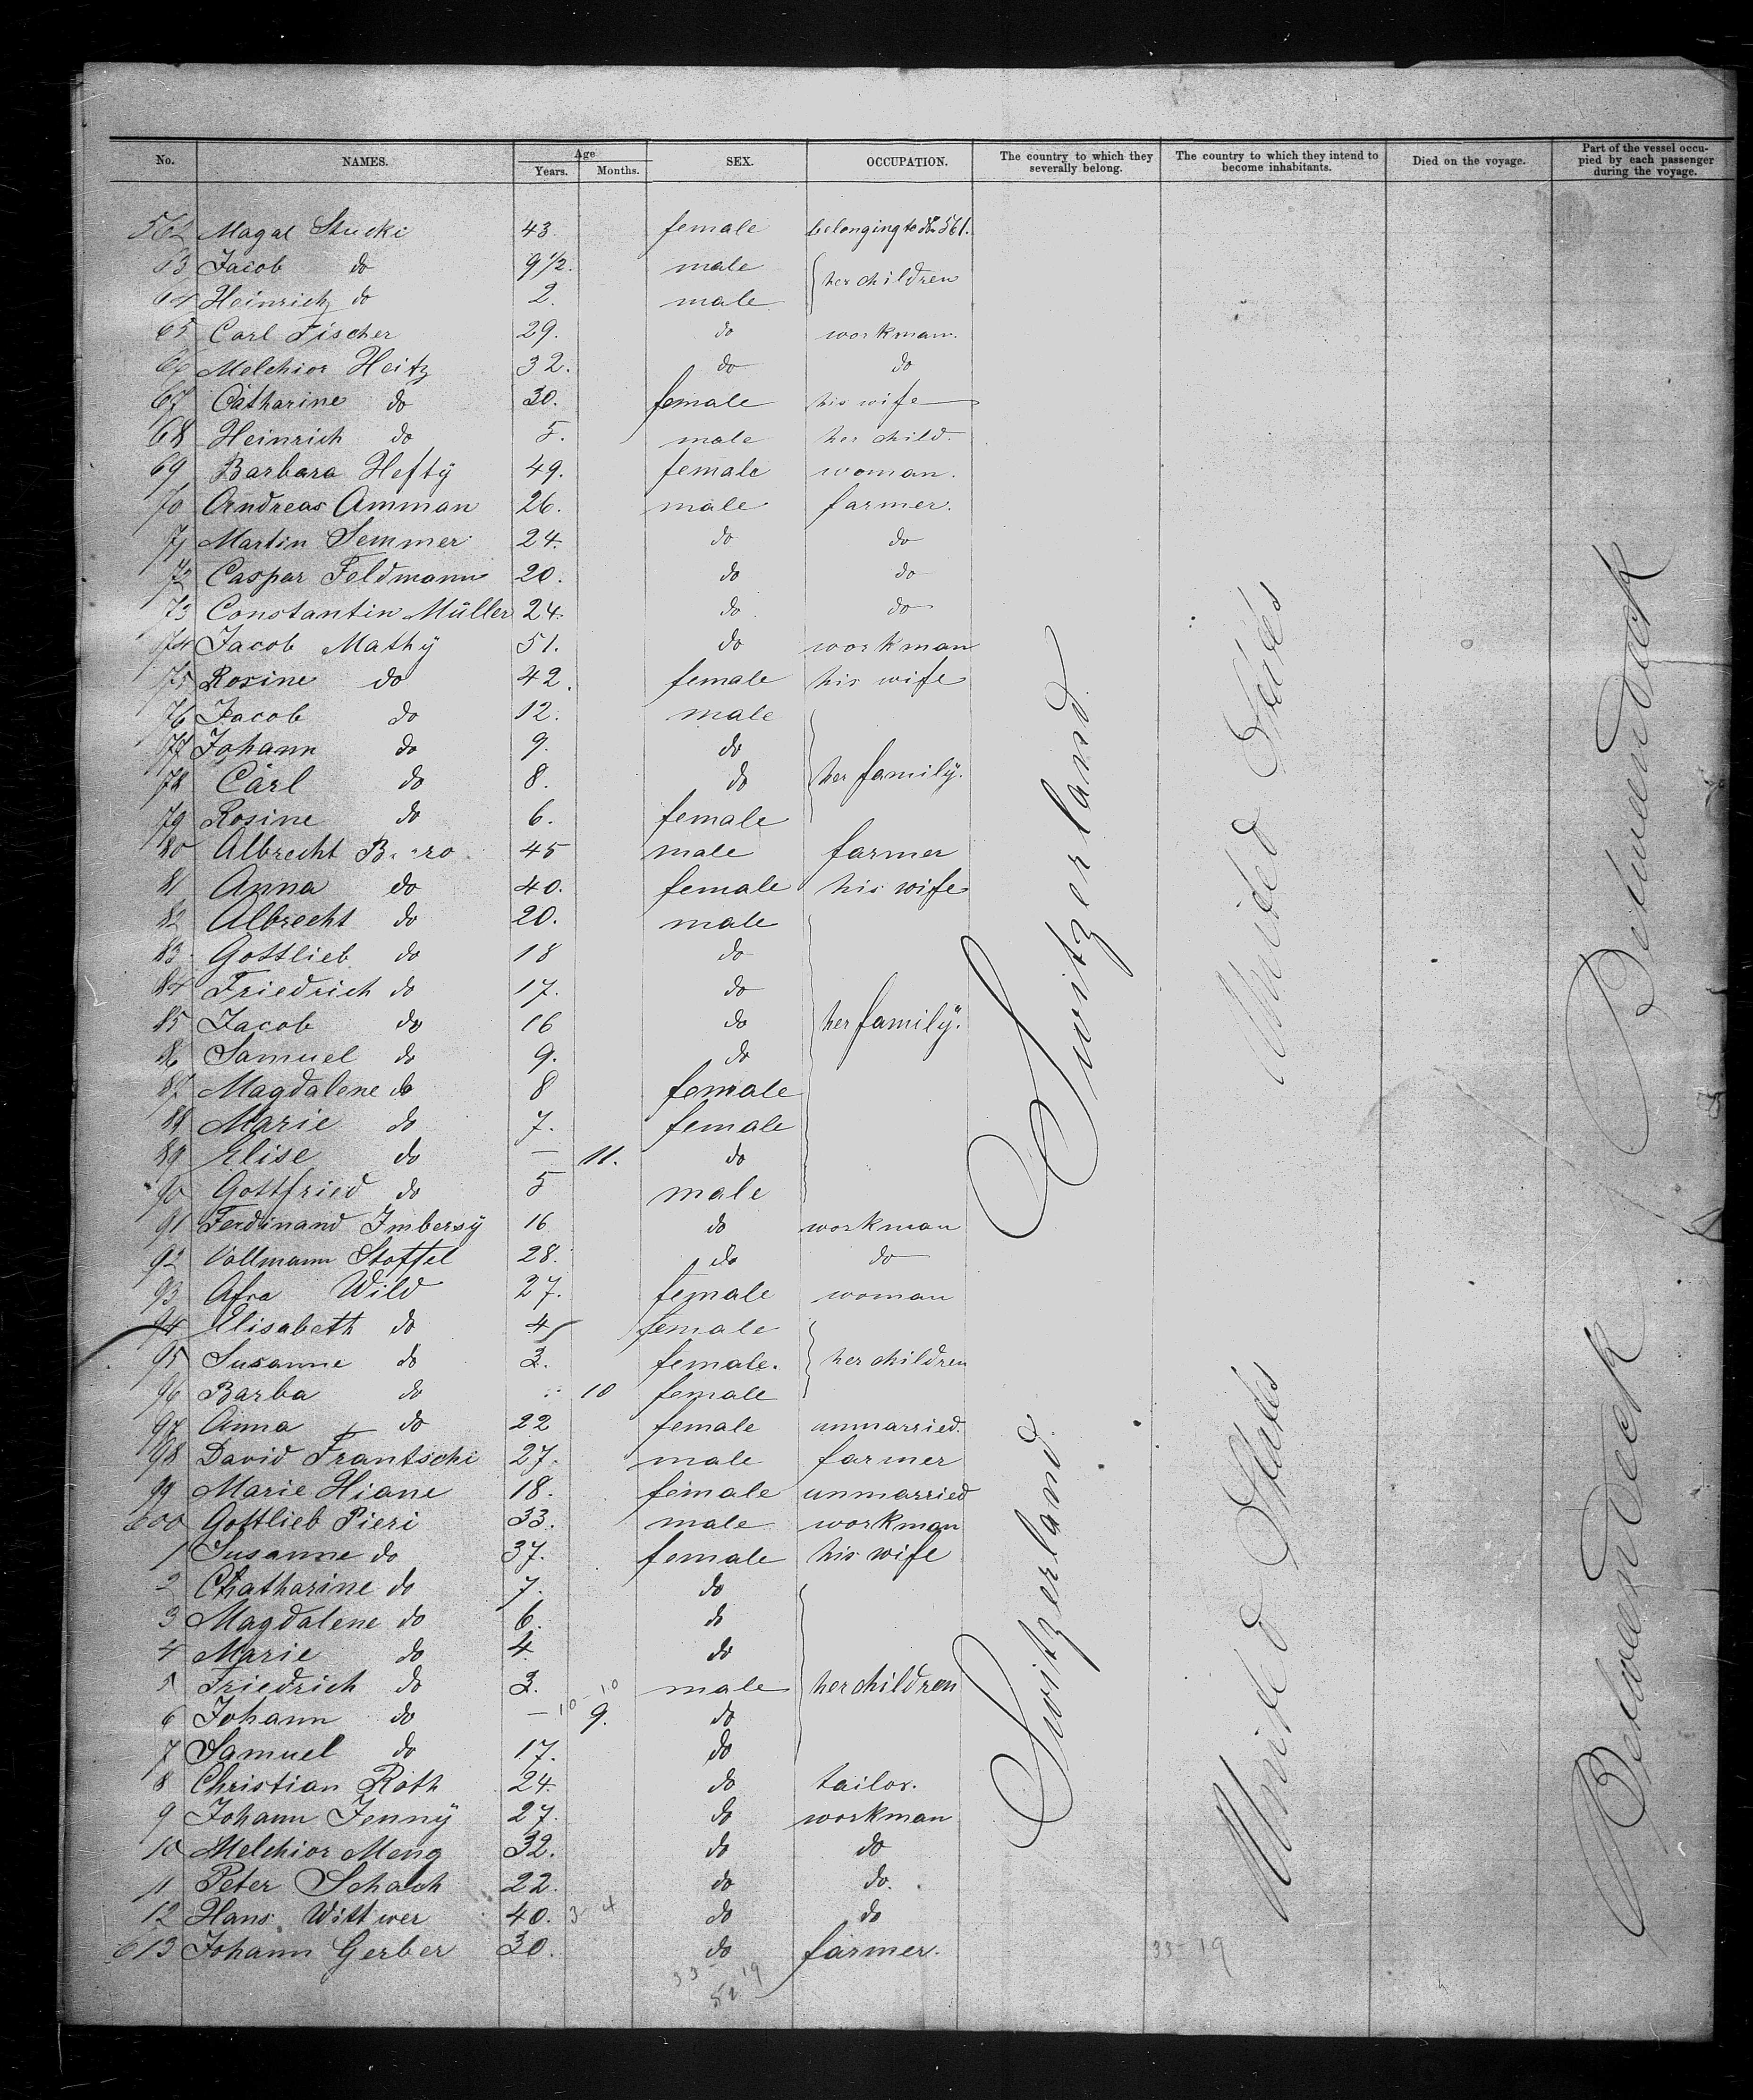 No. NAMES. Age Years. Months. SEX. OCCUPATION. The country to which they severally belong. The country to which they intend to become inhabitants. Died on the voyage. Part of the vessel occupied by each passenger during the voyage.
562 Magal Stucki 43 female belonging to No 561.
63 Jacob do 9 1/2. male her children
64 Heinrich do 2. male
65 Carl Fischer 29. do workman.
66 Melchior Heitz 32. do do
67 Catharine do 30. female his wife
68 Heinrich do 5. male her child.
69 Barbara Heftÿ 49. female woman.
70 Andreas Amman 26. male farmer.
71 Martin Semmer 24. do do
72 Caspar Feldmann 20. do do
73 Constantin Müller 24. do do
74 Jacob Mathÿ 51. do workman
75 Rosine do 42. female his wife
76 Jacob do 12. male
77 Johann do 9. do
78 Carl do 8. do her familÿ.
79 Rosine do 6. female
80 Albrecht 45 male farmer
81 Anna do 40. female his wife
82 Albrecht do 20. male
83 Gottlieb do 18 do
84 Friedrich do 17. do
85 Jacob do 16 do her familÿ.
86 Samuel do 9. do
87 Magdalene do 8 female
88 Marie do 7. female
89 Elise do — 11. do
90 Gottfried do 5 male
91 Ferdinand Imbersÿ 16 do workman
92 Vollmann Stoffel 28. do do
93 Afra Wild 27. female woman
94 Elisabeth do 4 female
95 Susanne do 3. female. her children
96 Barba do 10 female
97 Anna do 22 female unmarried.
98 David Frantschi 27. male farmer
99 Marie Hiane 18. female unmarried
600 Gottlieb Pieri 33. male workman
1 Susanne do 37. female his wife
2 Chatharine do 7. do
3 Magdalene do 6. do
4 Marie do 4. do
5 Friedrich do 3. male her children
6 Johann do — 10-10 9. do
7 Samuel do 17. do
8 Christian Roth 24. do tailor.
9 Johann Jennÿ 27. do workman
10 Melchior Meng 32. do do
11 Peter Schach 22. do do.
12 Hans Wittwer 40. 3 4 do do
613 Johann Gerber 30. do farmer.
33-19
33-19
52
Switzerland.
Switzerland.
United States
United States
Between Deck
Between Deck